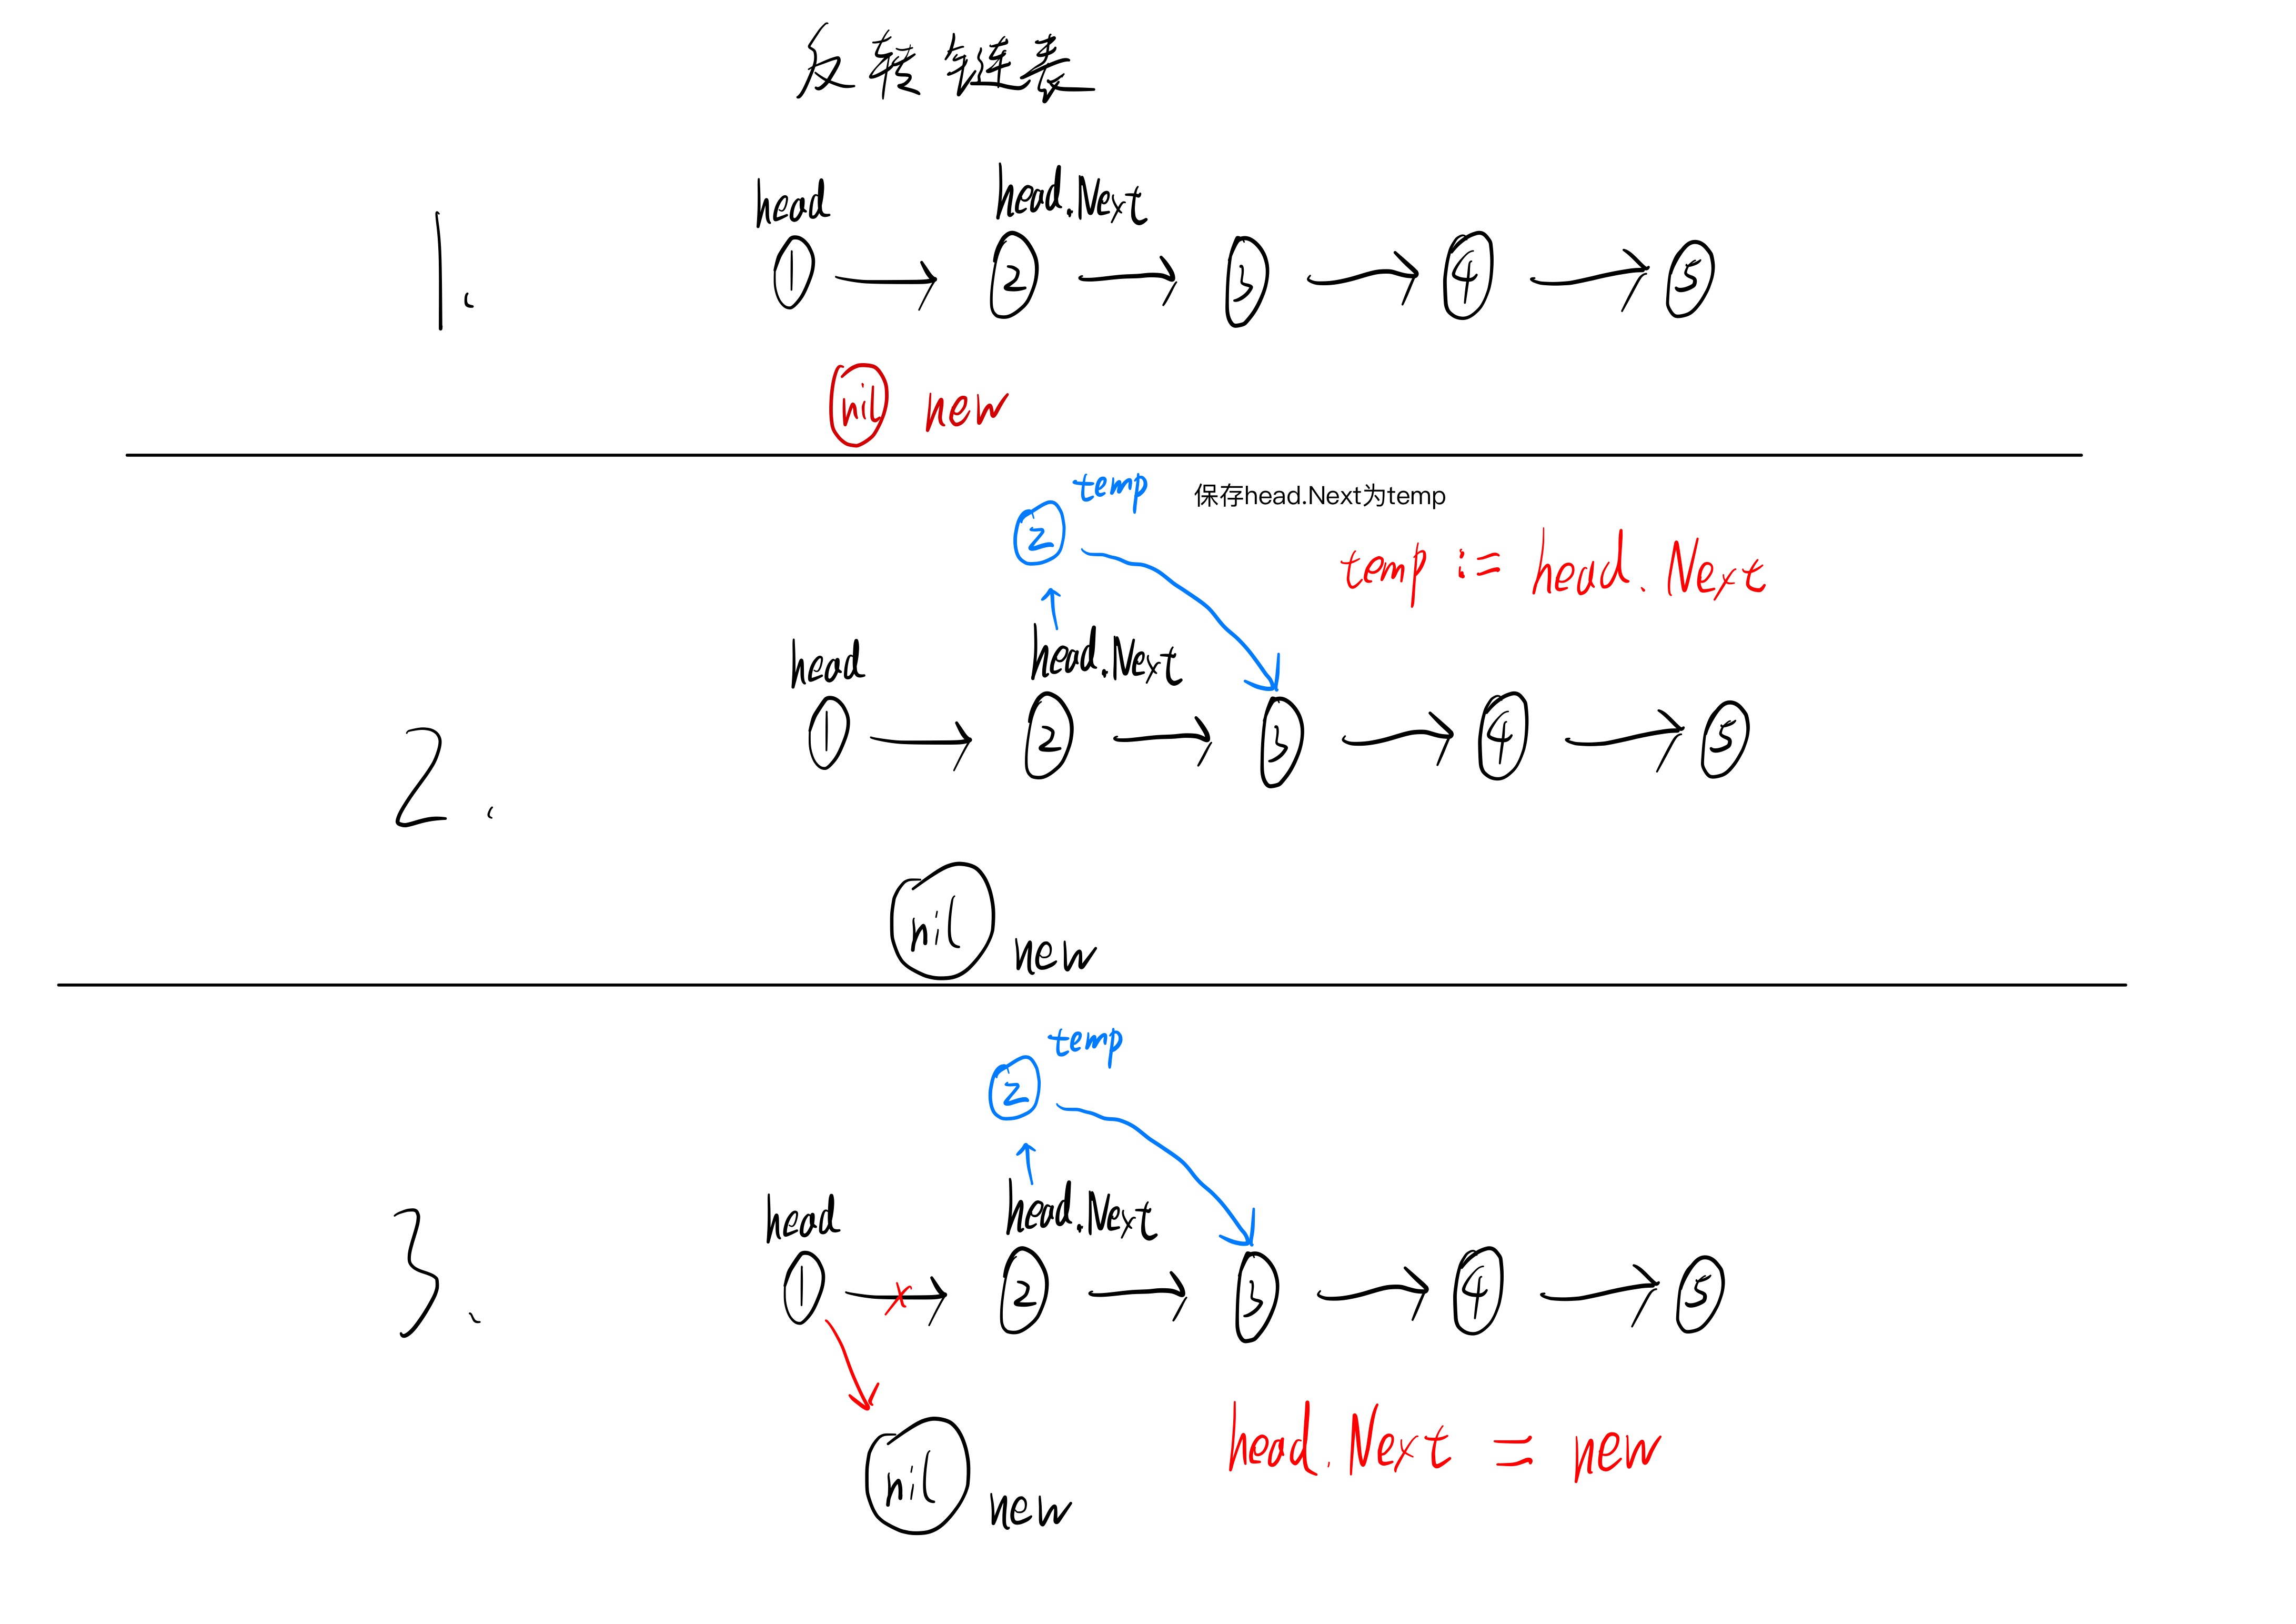 反转链表
1.
head head.Next
1 2 3 4 5
nil new
temp 保存head.Next为temp
2
temp := head.Next
head head.Next
2.
1 2 3 4 5
nil new
temp
2
head head.Next
3.
1 2 3 4 5
head.Next = new
nil new